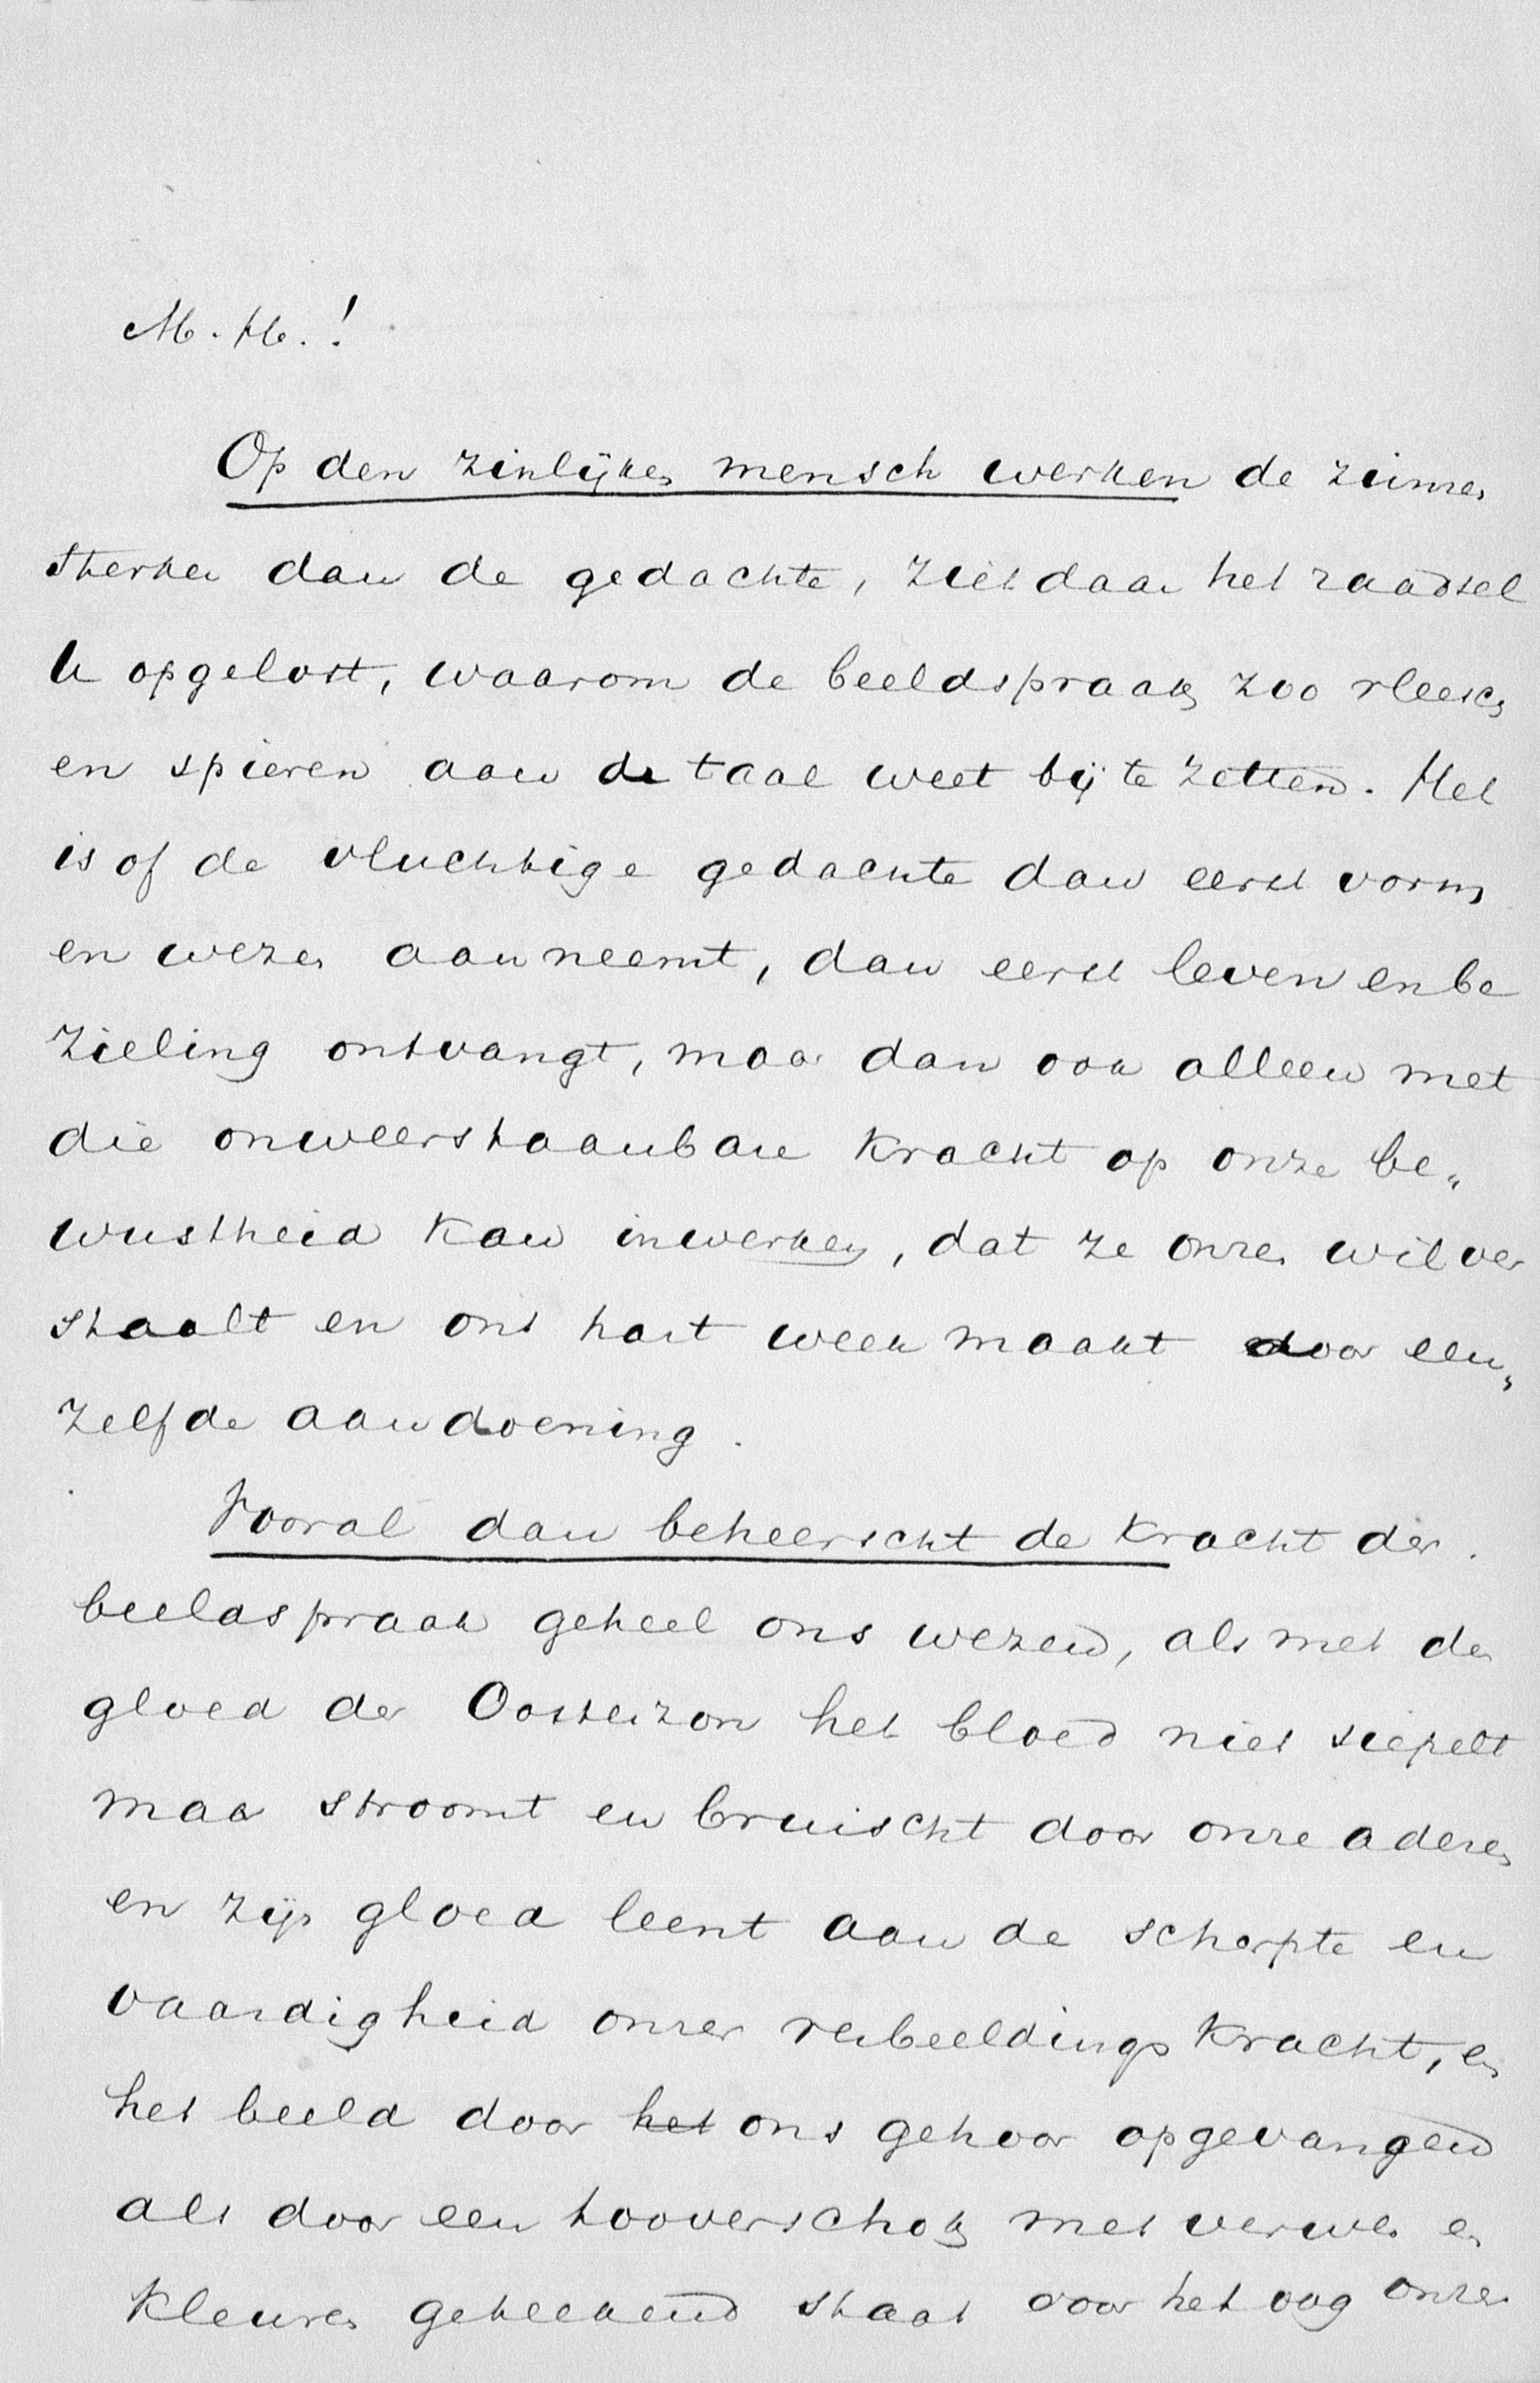 M. H.!
Op den zinlijken mensch werken de zinnen
sterker dan de gedachte, ziet daar het raadsel
U opgelost, waarom de beeldspraak zoo vleesch
en spieren aan de taal weet bij te zetten. Het
is of de vluchtige gedachte dan eerst vorm
en wezen aanneemt, dan eerst leven en be
zieling ontvangt, maar dan ook alleen met
die onweerstaanbare kracht op onze be„
wustheid kan inwerken, dat ze onzen wil ver
staalt en ons hart week maakt door een„
zelfde aandoening.
Vooral dan beheerscht de kracht der
beeldspraak geheel ons wezen, als met den
gloed der Oosterzon het bloed niet siepelt
maar stroomt en bruischt door onze aderen
en zijn gloed leent aan de scherpte en
vaardigheid onzer verbeeldingskracht, en
het beeld door het ons gehoor opgevangen
als door een tooverschok met verwen en
kleuren geteekend staat voor het oog onzer